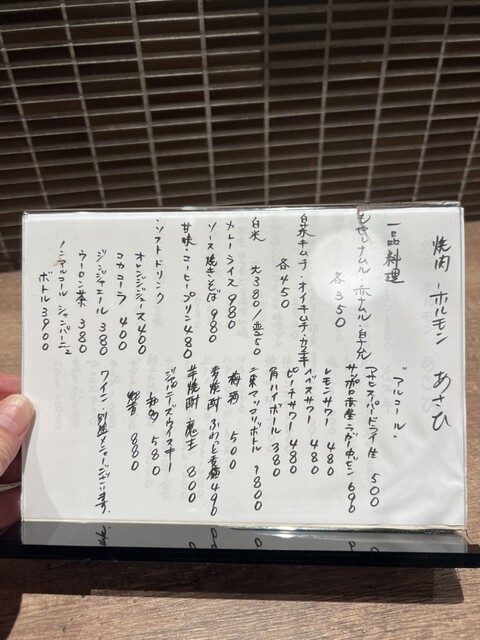 焼肉 ホルモン あさひ
一品料理
もやしナムル・ホナムル・
各350
白菜キムチ・オイキムチ・カクテキ
各450
白米 大380/並250
カレーライス980
ソース焼きそば980
甘味・コーヒープリン480
・ソフトドリンク
オレンジジュース400
コカコーラ 400
ジンジャエール380
ウーロン茶380
ノンアルコール シャンパーニュ
ボトル3900
アルコール・
アサヒスーパードライ生 500
サッポロ赤星ラガービン 690
レモンサワー 480
ヘベスサワー 480
ピーチサワー 480
角ハイボール 380
二東マッコリボトル 1800
梅酒 500
麦焼酎 ふわっと 490
芋焼酎 魔王 800
ジャパニーズウイスキー
知多 580
880
ワイン・別紙メニューございます。